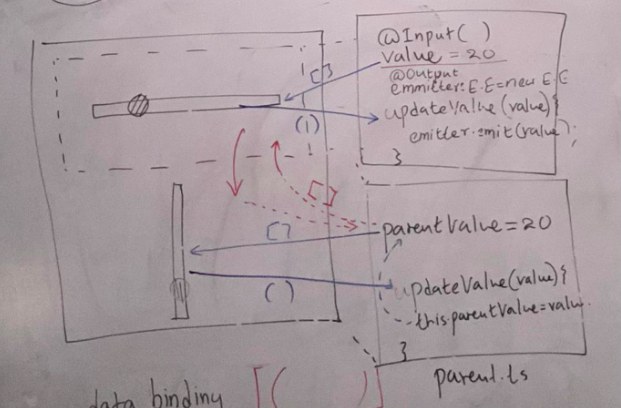 @Input( )
value = 20
@Output
emmitter: E.E = new E.E
updateValue(value){
emitter.emit(value);
}
[ ]
( )
[ ]
parentValue = 20
[ ]
updateValue(value){
this.parentValue = value.
( )
}
parent.ts
data binding [( )]